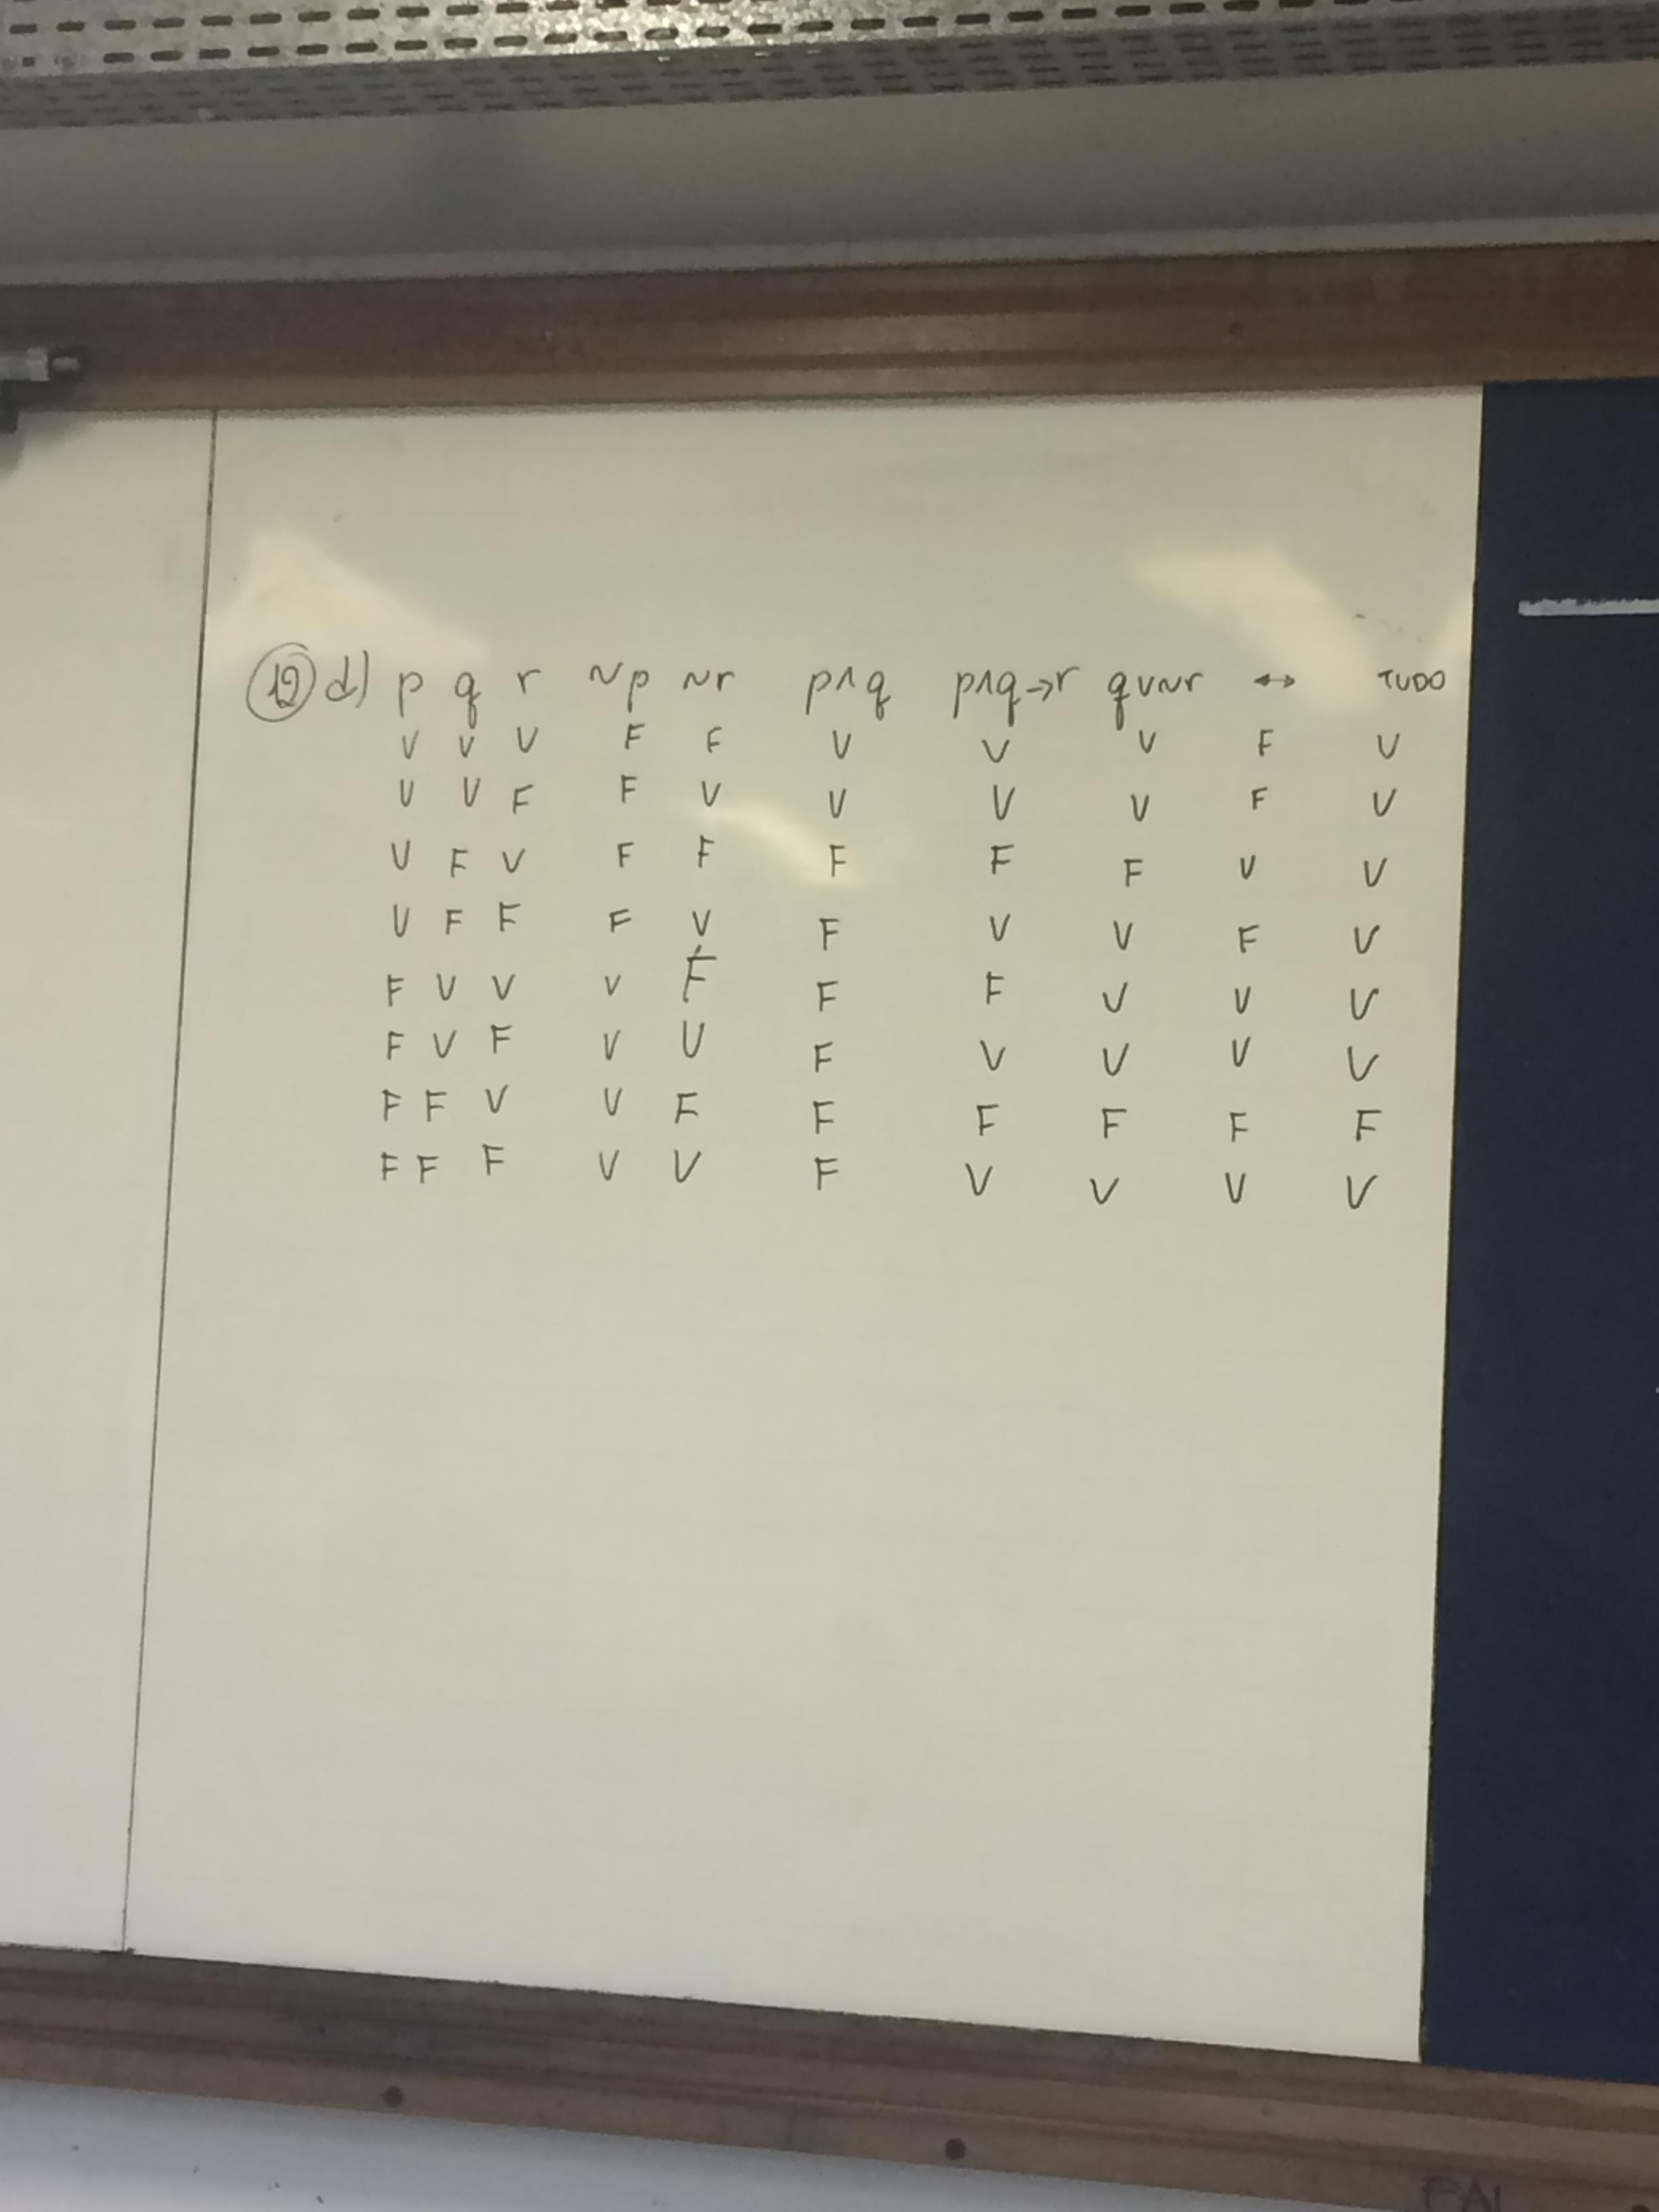 19 d) p q r ~p ~r p∧q p∧q→r q∨~r ↔ TUDO
V V V F F V V V F V
V V F F V V V V F V
V F V F F F F F V V
V F F F V F V V F V
F V V V F F F V V V
F V F V V F V V V V
F F V V F F F F F F
F F F V V F V V V V